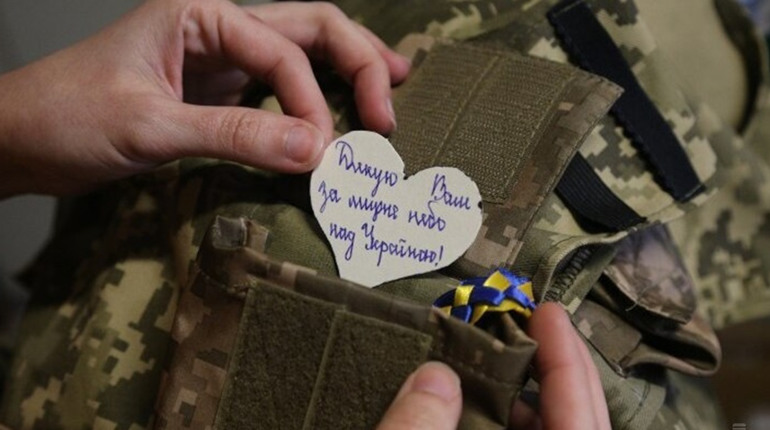 Дякую Вам
за мирне небо
над Україною!